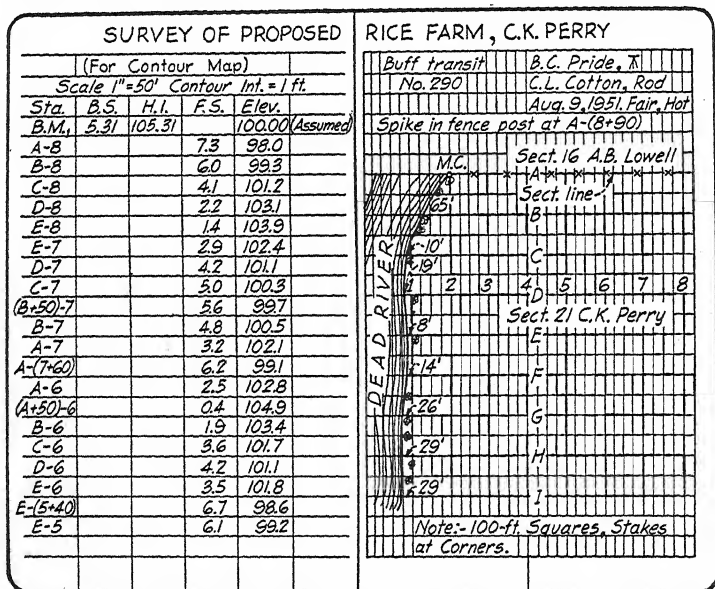 SURVEY OF PROPOSED RICE FARM, C.K. PERRY
(For Contour Map)
Scale 1"=50' Contour Int.=1 ft.
Sta. B.S. H.I. F.S. Elev.
B.M., 5.31 105.31 100.00 (Assumed)
A-8 7.3 98.0
B-8 6.0 99.3
C-8 4.1 101.2
D-8 2.2 103.1
E-8 1.4 103.9
E-7 2.9 102.4
D-7 4.2 101.1
C-7 5.0 100.3
(B+50)-7 5.6 99.7
B-7 4.8 100.5
A-7 3.2 102.1
A-(7+60) 6.2 99.1
A-6 2.5 102.8
(A+50)-6 0.4 104.9
B-6 1.9 103.4
C-6 3.6 101.7
D-6 4.2 101.1
E-6 3.5 101.8
E-(5+40) 6.7 98.6
E-5 6.1 99.2
Buff transit B.C. Pride,
No. 290 C.L. Cotton, Rod
Aug. 9, 1951. Fair, Hot
Spike in fence post at A-(8+90)
M.C. Sect. 16 A.B. Lowell
A
Sect. line
65'
B
10'
C
19'
1 2 3 4 5 6 7 8
D
Sect. 21 C.K. Perry
DEAD RIVER
8'
E
14'
F
26'
G
29'
H
29'
I
Note:- 100-ft. Squares, Stakes
at Corners.